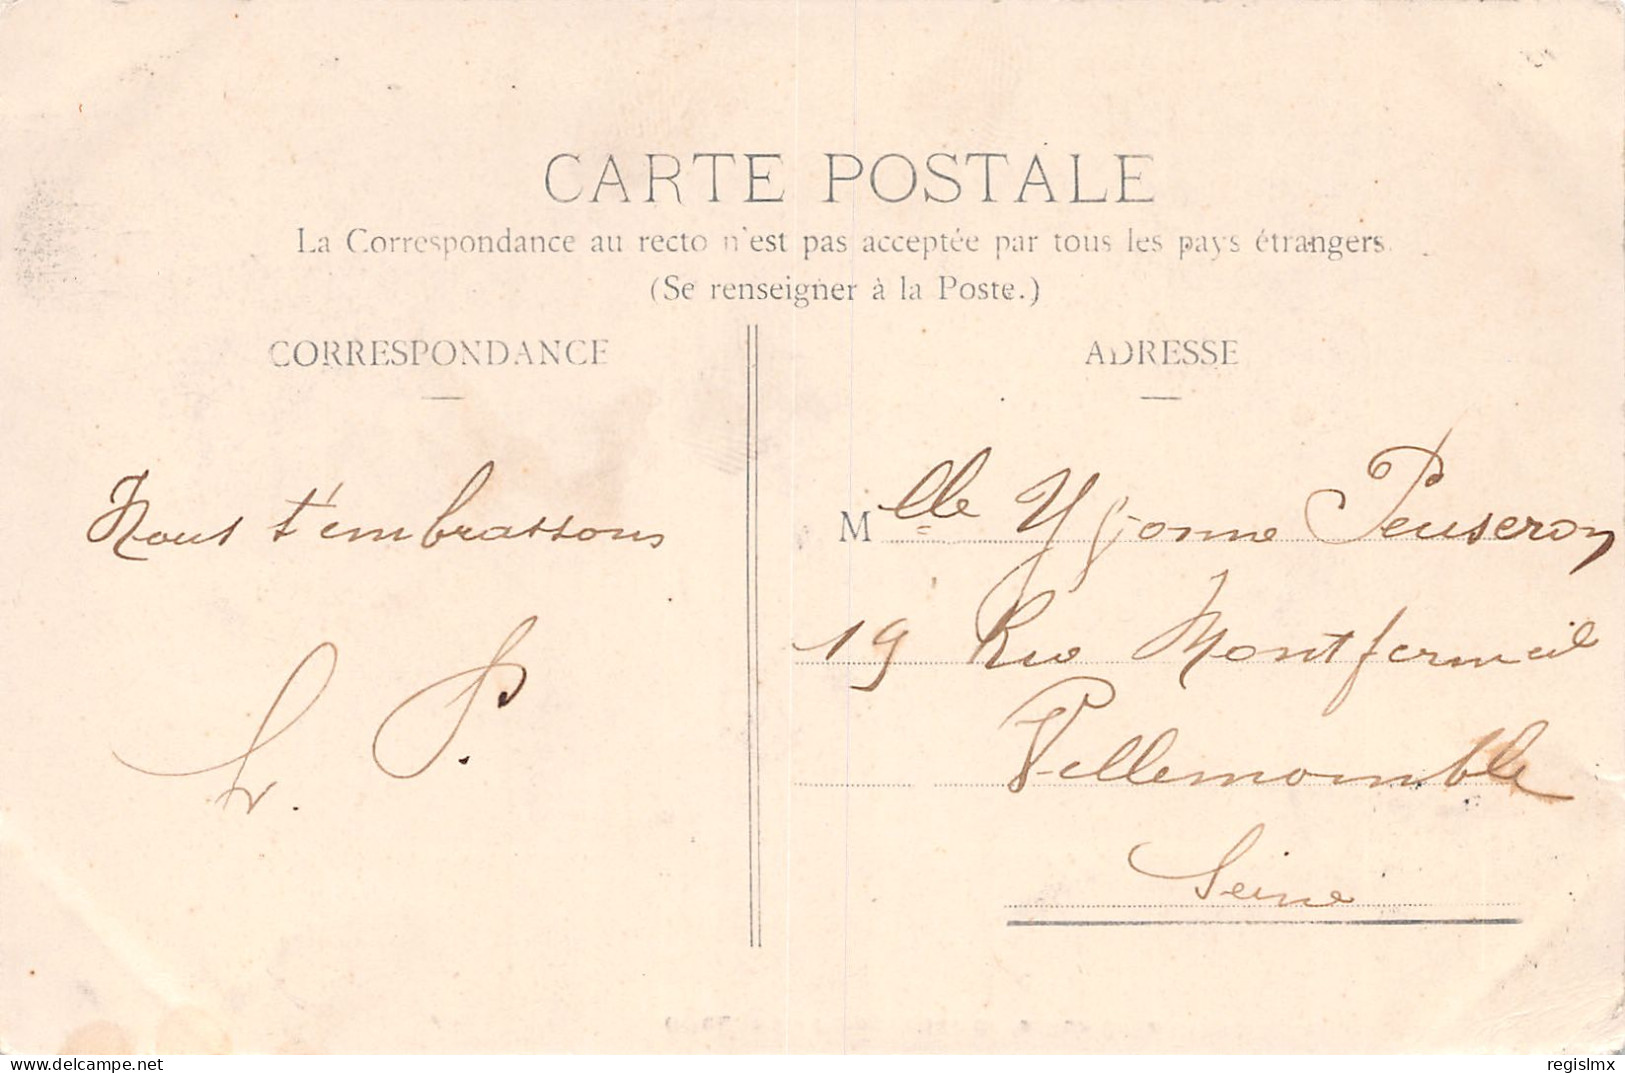 CARTE POSTALE
La Correspondance au recto n'est pas acceptée par tous les pays étrangers.
(Se renseigner à la Poste.)
CORRESPONDANCE
Nous t'embrassons
L. P.
ADRESSE
Mlle Yvonne Peuseron
19 Rue Montfermeil
Villemomble
Seine
delcampe.net
regislmx